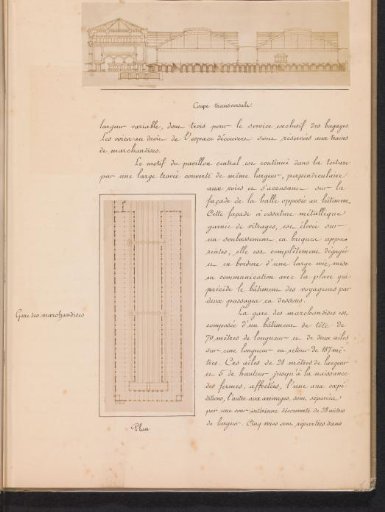 Coupe transversale
largeur variable, dont trois pour le service exclusif des bagages
les voies au droit de l'espace découvert sont réservées aux trains
de marchandises.
Le motif du pavillon central est continué dans la toiture
par une large travée couverte de même largeur, perpendiculaire
aux voies et s'accusant sur la
façade de la halle opposée au bâtiment
Cette façade à ossature métallique
garnie de vitrages, est élevée sur
un soubassement en briques appa
rentes, elle est complètement dégagée
et en bordure d'une large voie, mise
en communication avec la place qui
précède le bâtiment des voyageurs par
deux passages en dessous.
Gare des marchandises
La gare des marchandises est
composée d'un bâtiment de tête de
70 mètres de longueur et de deux ailes
sur une longueur en retour de 187 mè-
tres. Ces ailes de 20 mètres de largeur
et 5 de hauteur jusqu'à la naissance
des fermes, affectées, l'une aux expé
ditions, l'autre aux arrivages, sont séparées
par une cour intérieure découverte de 28 mètres
de largeur. Cinq voies sont réparties dans
Plan